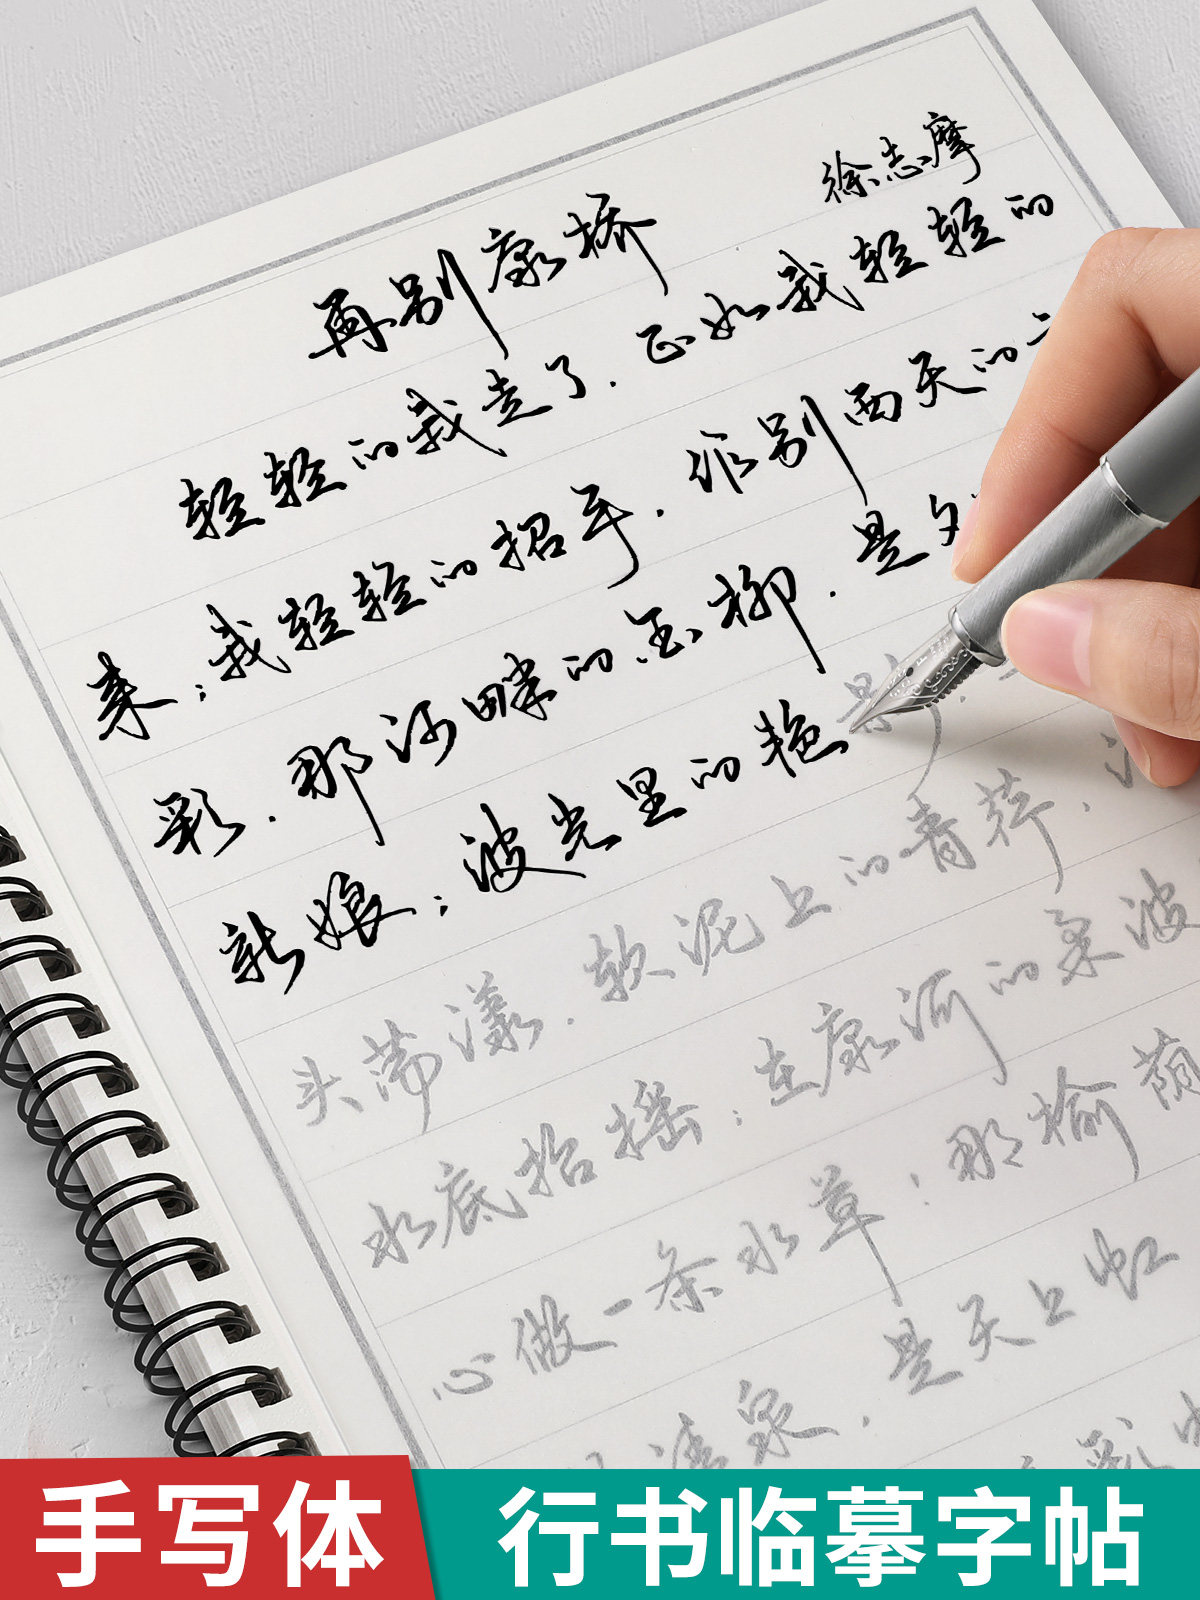 再别康桥
徐志摩
轻轻的我走了.正如我轻轻的
来;我轻轻的招手.作别西天的
彩.那河畔的金柳.是夕
新娘;波光里的艳影.
头荡漾.软泥上的青荇.
水底招摇;在康河的柔波
心做一条水草!那榆荫
清泉.是天上虹
彩
手写体 行书临摹字帖